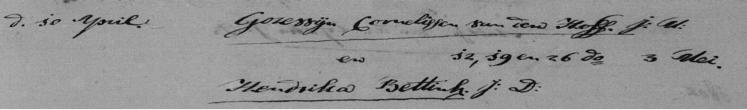 d. 10 April. Gozewijn Cornelissen van den Hoff. j: M:
en 12, 19 en 26 do 3 Mei.
Hendrika Bettink. J: D: